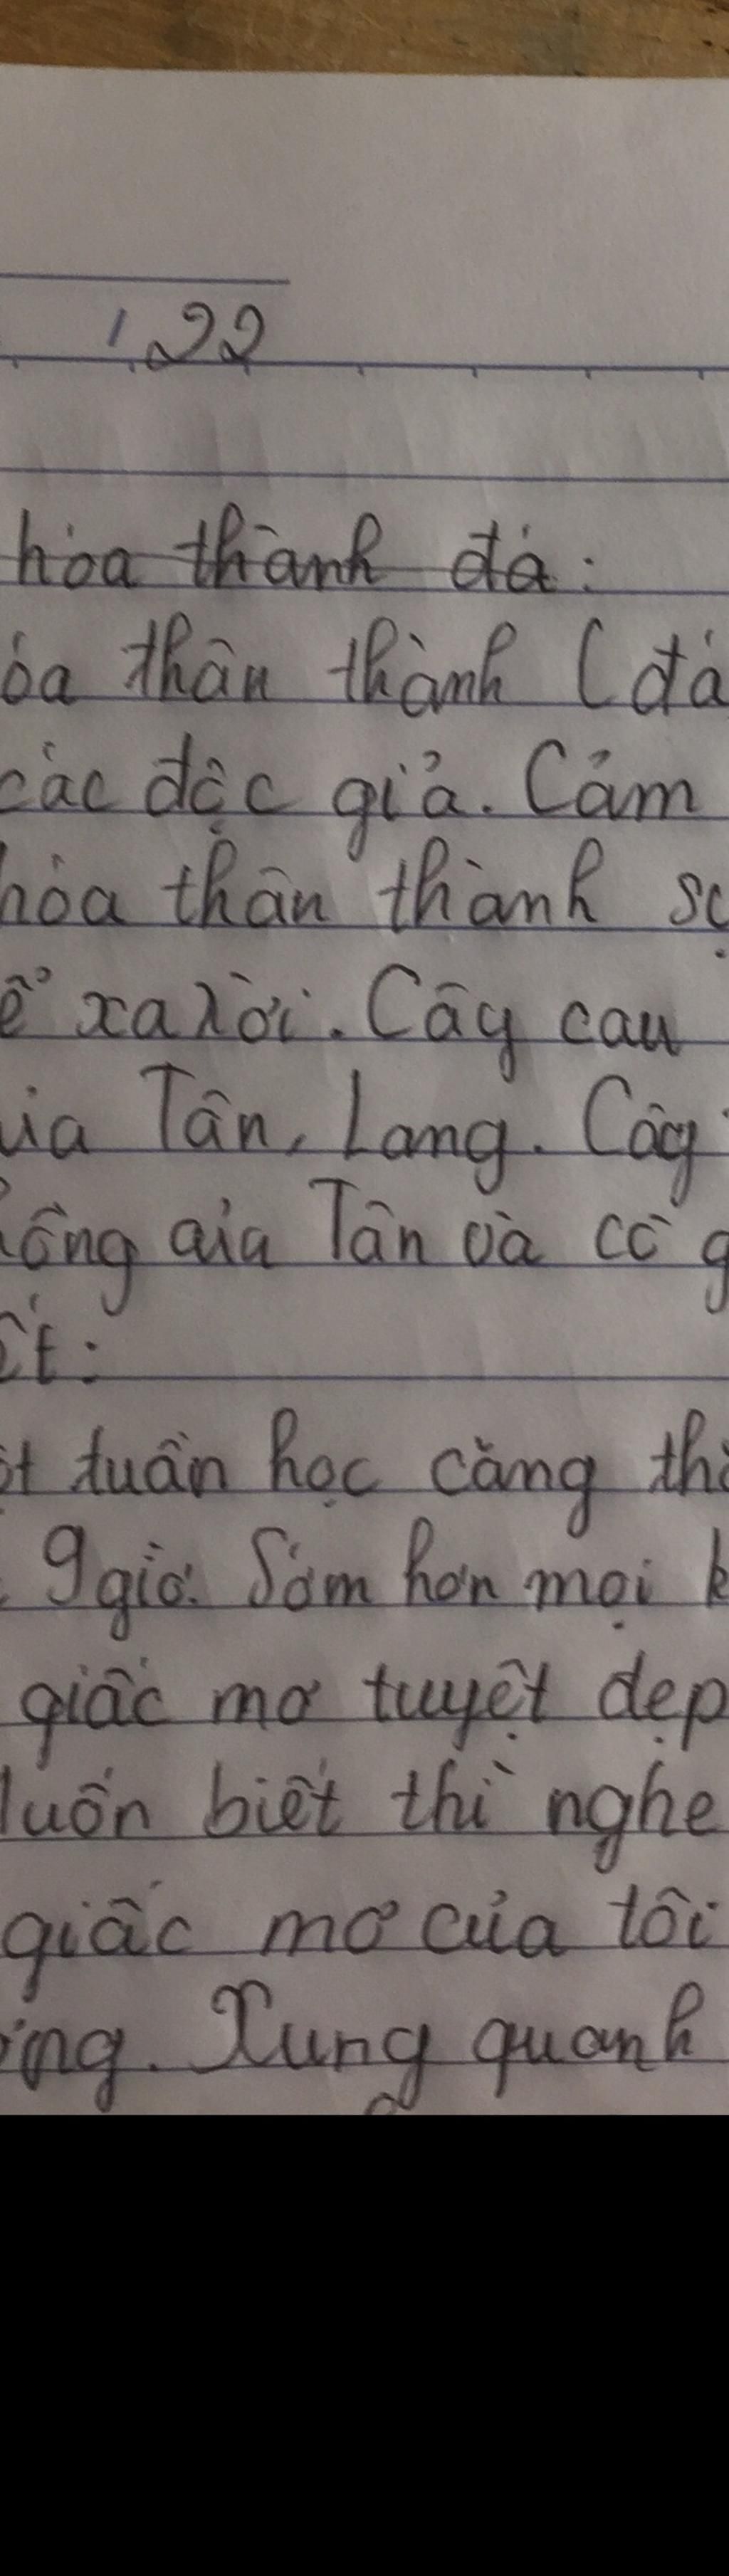 22
hóa thành đá:
óa thân thành (đá
các độc giả. Cảm
hóa thân thành sự
ể xa rời. Cây cau
ủa Tân, Lang. Cây
ồng của Tân và cô g
ết:
ột tuần học căng th
9 giờ. Sớm hơn mọi k
giấc mơ tuyệt đẹp
luốn biết thì nghe
giấc mơ của tôi
ờng. Xung quanh